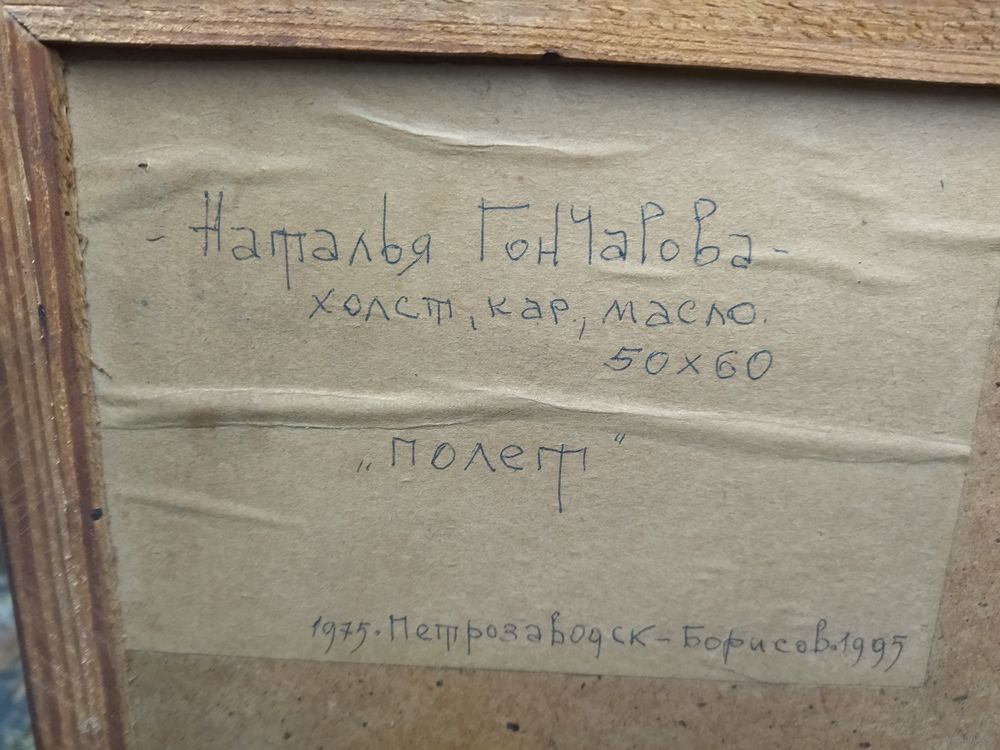 - Наталья Гончарова -
холст, кар., масло.
50х60
„Полет"
1975. Петрозаводск - Борисов. 1995